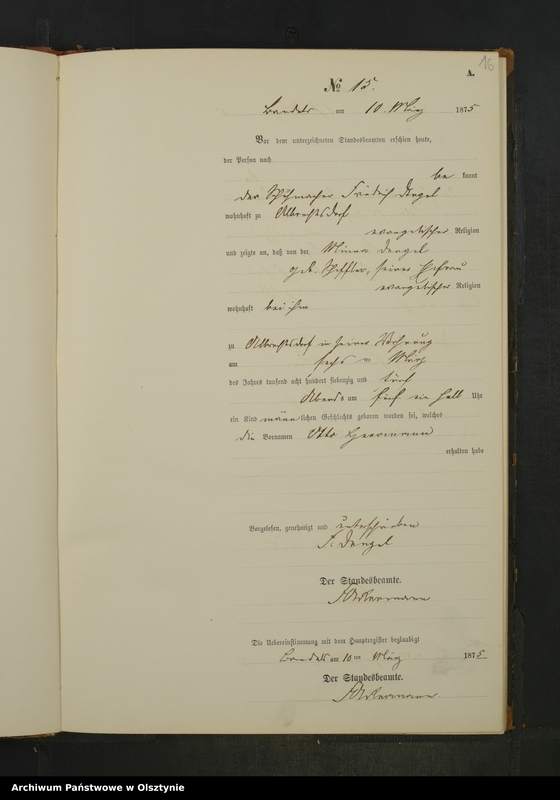 16
A.
No 15.
Bandels am 10. März 1875
Vor dem unterzeichneten Standesbeamten erschien heute,
der Person nach
be kannt
der Friedrich Dengel
wohnhaft zu Albrechtsdorf
evangelischer Religion
und zeigte an, daß von der Dengel
geb. seiner Ehefrau
evangelischer Religion
wohnhaft bei ihm
zu Albrechtsdorf in seiner Wohnung
am sechs ten März
des Jahres tausend acht hundert siebenzig und fünf
Abends um fünf ein halb Uhr
ein Kind männ lichen Geschlechts geboren worden sei, welches
die Vornamen Otto Herrmann
erhalten habe
Vorgelesen, genehmigt und unterschrieben
F. Dengel
Der Standesbeamte.
Die Uebereinstimmung mit dem Hauptregister beglaubigt
Bandels am 10 ten März 1875
Der Standesbeamte.
Archiwum Państwowe w Olsztynie